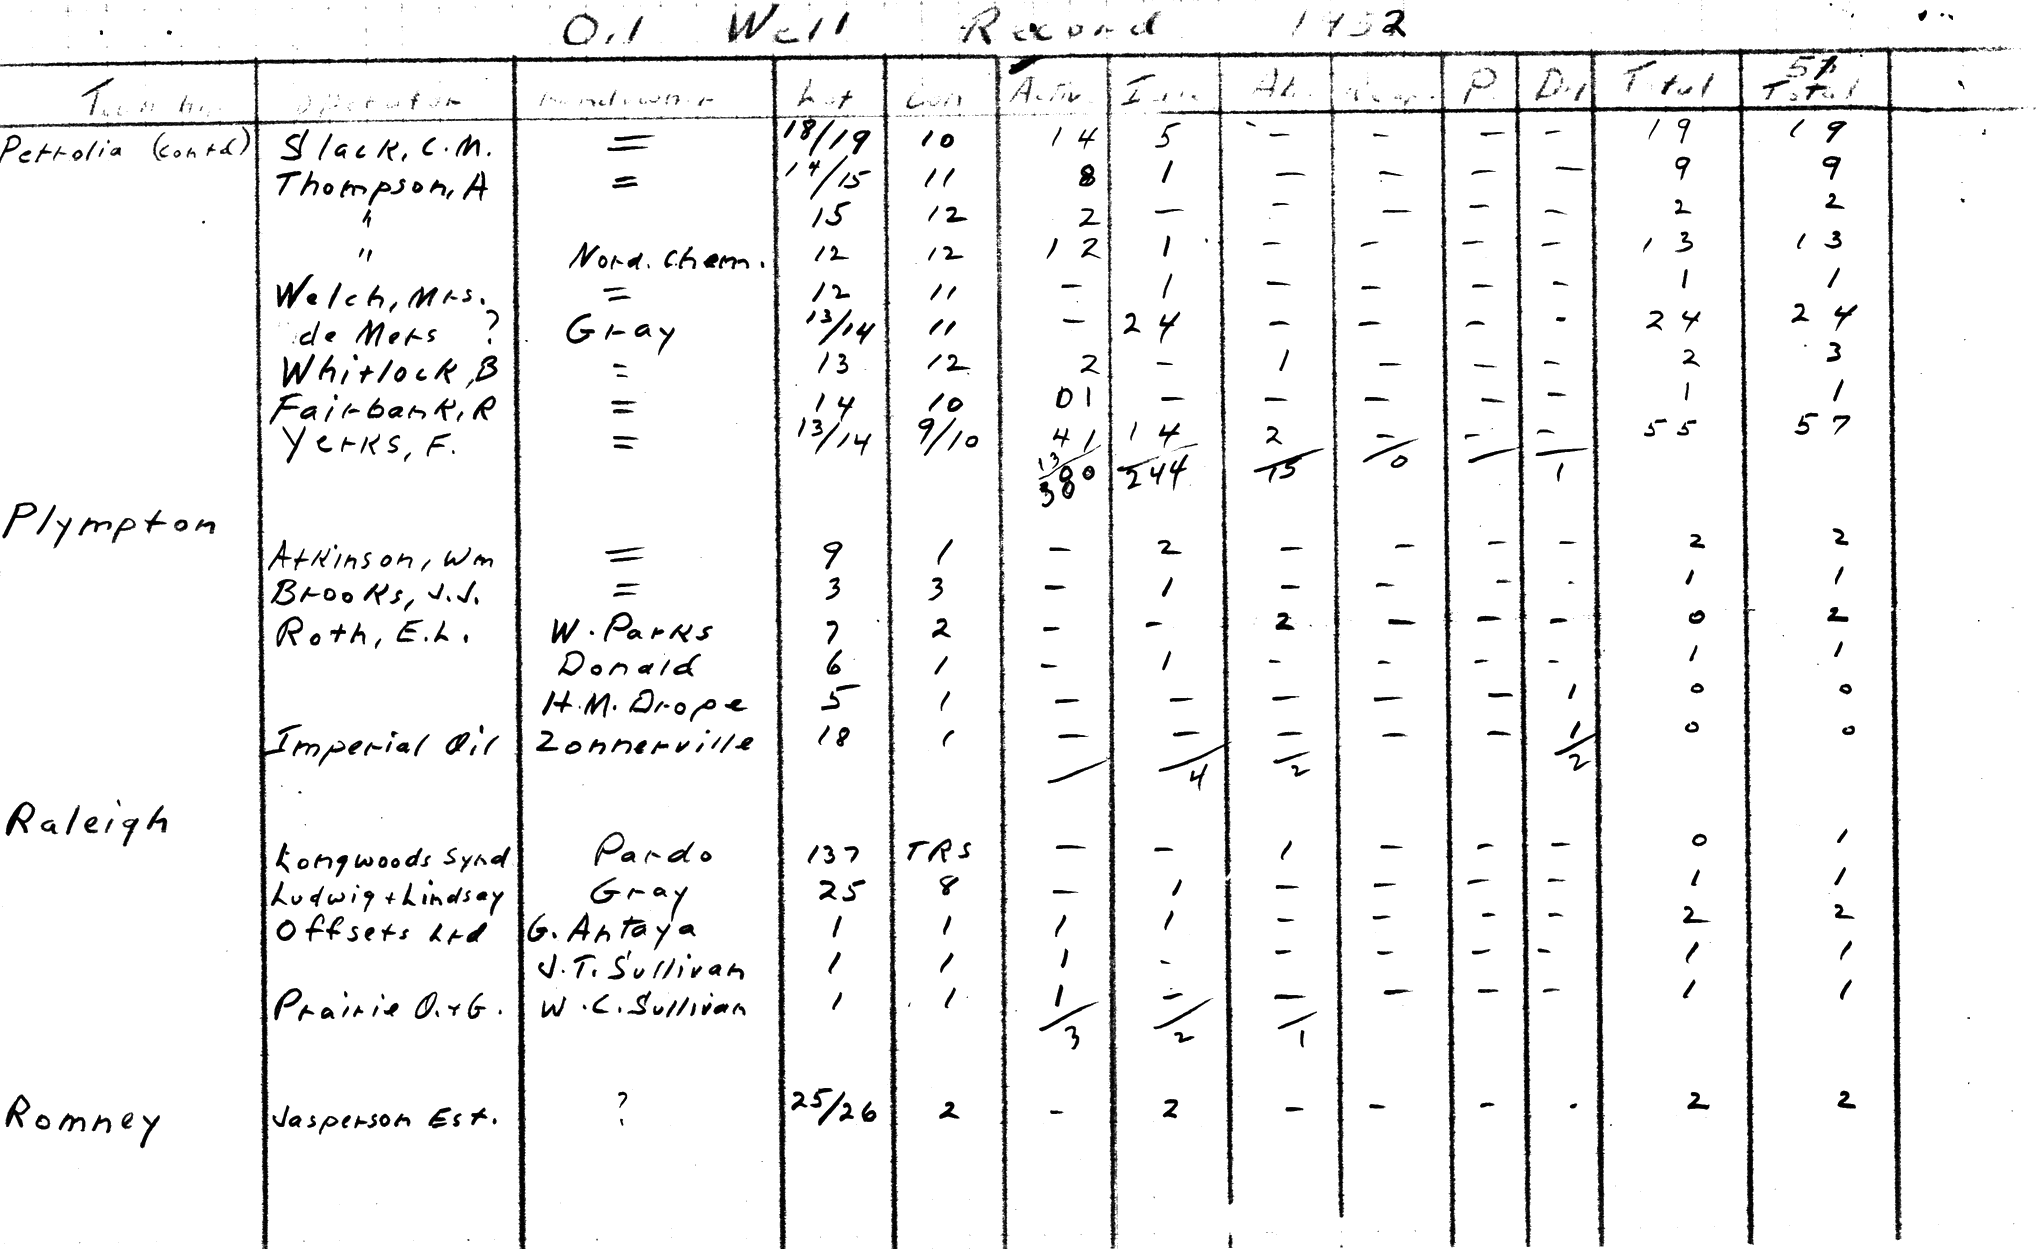 Oil Well Record 1952
Township Operator Landowner Lot Con Activ. Total 51 Total
Petrolia (contd) Slack, C.M. = 18/19 10 14 5 - - - - 19 19
Thompson, A = 14/15 11 8 1 - - - - 9 9
" 15 12 2 - - - - - 2 2
" Nord. Chem. 12 12 12 1 - - - - 13 13
Welch, Mrs. = 12 11 - 1 - - - - 1 1
de Mers ? Gray 13/14 11 - 24 - - - - 24 24
Whitlock, B = 13 12 2 - 1 - - - 2 3
Fairbank, R = 14 10 01 - - - - - 1 1
Yerks, F. = 13/14 9/10 41 14 2 - - - 55 57
244 15 0 1
Plympton
Atkinson, Wm = 9 1 - 2 - - - - 2 2
Brooks, J.J. = 3 3 - 1 - - - - 1 1
Roth, E.L. W. Parks 7 2 - - 2 - - - 0 2
Donald 6 1 - 1 - - - - 1 1
H.M. Drope 5 1 - - - - - 1 0 0
Imperial Oil Zonnerville 18 1 - - - - - 1 0 0
4 2 2
Raleigh
Longwoods Synd Pardo 137 TRS - - 1 - - - 0 1
Ludwig + Lindsay Gray 25 8 - 1 - - - - 1 1
Offsets Ltd G. Antaya 1 1 1 1 - - - - 2 2
J.T. Sullivan 1 1 1 - - - - - 1 1
Prairie O. + G. W.C. Sullivan 1 1 1 - - - - - 1 1
3 2 1
Romney Jasperson Est. ? 25/26 2 - 2 - - - - 2 2